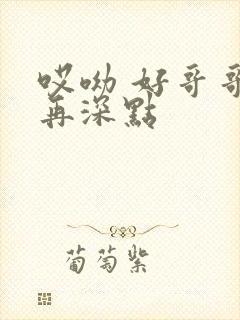 哎呦 好哥哥
再深點
葡萄紫